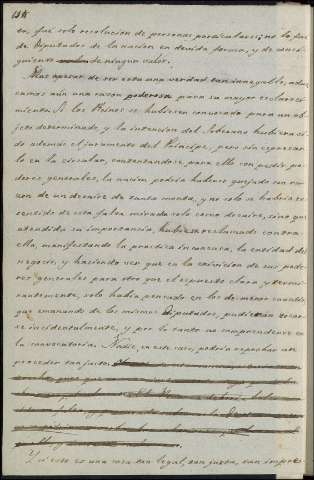 ta, fué solo resolucion de personas particulares; no la fué
de Diputados de la nacion en devida forma, y de consi-
guiente de ningun valor.
Mas apesar de ser esta una verdad tan innegable, aduz-
camos aún una razon poderosa para su mayor esclareci-
miento. Si los Reinos se hubiesen convocado para un ob-
jeto determinado y la intencion del Soberano hubiera si-
do ademas el juramento del Principe, pero sin expresar-
lo en la circular, contentandose para ello con pedir po-
deres generales, la nacion podria haberse quejado con ra-
zon de un desaire de tanta monta, y no solo se habria re-
sentido de esta falta mirada solo como desaire, sino que
atendida su importancia, hubiera reclamado contra
ella, manifestando la practica inconcusa, la entidad del
negocio, y haciendo ver que en la exivicion de sus pode-
res generales para otro que el expreso clara y termi-
nantemente, solo habia pensado en los de menor cuantia
que emanando de los mismos Diputados, pudieran tocar-
se incidentalmente, y por lo tanto no comprenderse en
la convocatoria. Nadie, en este caso, podria reprochar un
proceder tan justo.
Y si esto es una cosa tan legal, tan justa, tan impres-